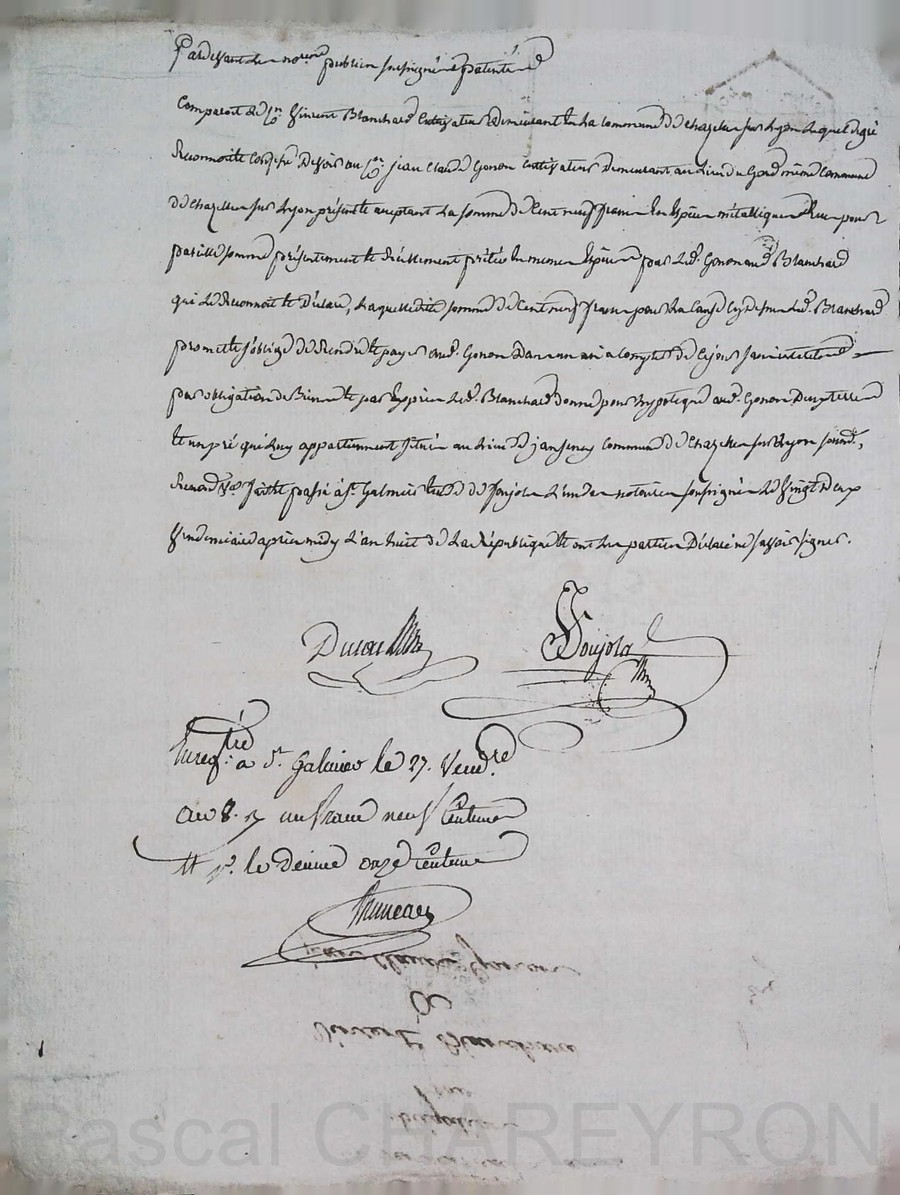 Pardevant les no.res publics soussignés patentés
Comparoit le c.en Vincent Blanchard Cultivateur demeurant en la commune de chazelles sur Lyon lequel de gré
Reconnoit et Confesse Devoir au c.en jean Claude Gonon Cultivateur demeurant au lieu du même Commune
de chazelles sur Lyon présent et acceptant La somme de Cent neuf francs En Espèces métalliques pour
pareille somme présentement et réellement prêtée En mêmes Espèces par Led. Gonon aud. Blanchard
qui Le Reconnoit et Déclare, Laquelle dite somme de Cent neuf francs pour La Cause Cy dessus Led. Blanchard
promet et s'oblige de Rendre et payer aud. Gonon Dans un an a Compter de Ce jour
par obligation de Biens et par Exprès Led. Blanchard donne pour hypotèque aud. Gonon Une terre
et un pré qui Luy appartiennent situés au Lieu de commune de Chazelles sur Lyon
fait et passé à St. Galmier Etude de Poujola L'un des notaires soussignés Le Vingt deux
Vendemiaire après midy L'an huit de La République Et ont Les parties Déclaré ne savoir signer.
Poujola
Enreg.tré a St. Galmier le 27. Vend.re
an 8. un franc neuf Centimes
et p.r le Décime onze Centimes
jean Claude Gonon
&
Vincent Blanchard
Pascal CHAREYRON